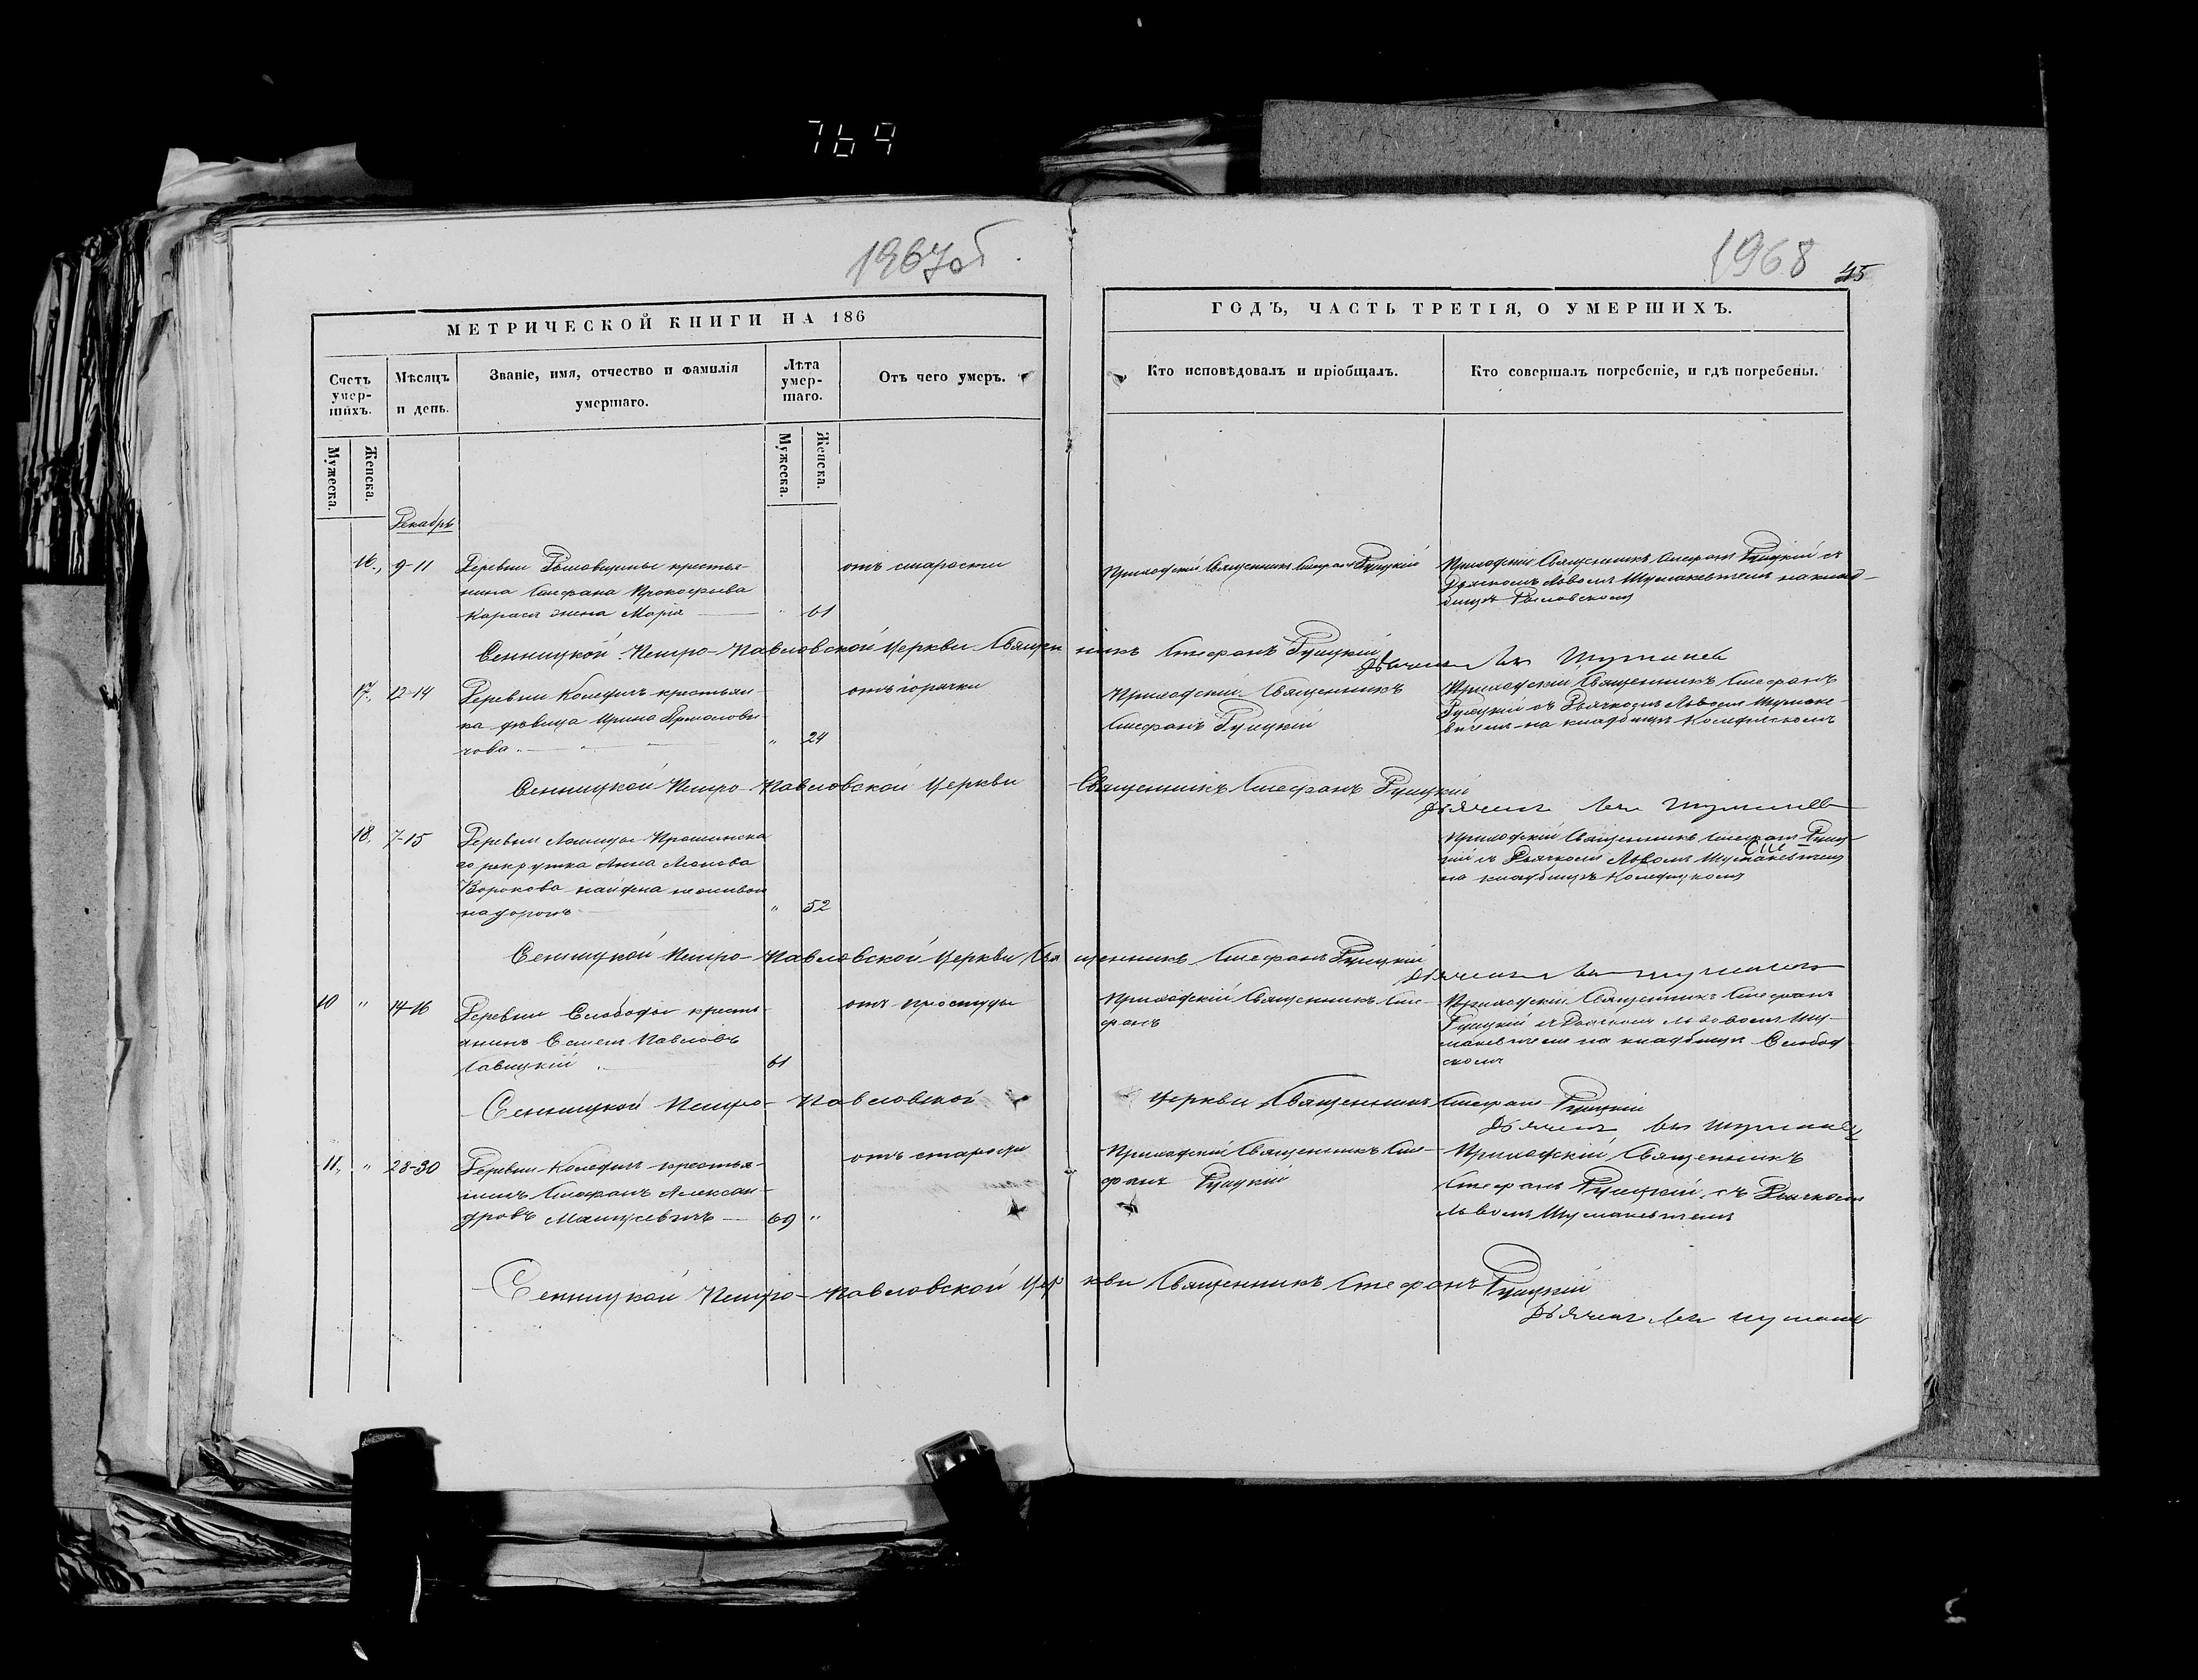 769
1967об
1968
45
МЕТРИЧЕСКОЙ КНИГИ НА 186
ГОДЪ, ЧАСТЬ ТРЕТІЯ, О УМЕРШИХЪ.
Счетъ умер-шихъ.
Мѣсяцъ и день.
Званіе, имя, отчество и фамилія умершаго.
Лѣта умер-шаго.
Отъ чего умеръ.
Кто исповѣдовалъ и пріобщалъ.
Кто совершалъ погребеніе, и гдѣ погребены.
Мужеска.
Женска.
Мужеска.
Женска.
Декабрь
16., 9-11 Деревни крестья-
нина Стефана Прокофьева
Карася жена Марія — " 61
отъ старости
Приходскій Священникъ Стефанъ Руцкій
Приходскій Священникъ Стефанъ Руцкій съ
Дьячкомъ Львомъ Шуманевичемъ на клад-
бищѣ
Сенницкой Петро-Павловской Церкви Священникъ Стефанъ Руцкій
Дьячекъ Левъ
17., 12-14 Деревни Колядичъ крестьян-
ка дѣвица Ирина Ермолови
чова. " 24
отъ горячки
Приходскій Священникъ
Стефанъ Руцкій
Приходскій Священникъ Стефанъ
Руцкій съ Дьячкомъ Львомъ Шумане-
вичемъ на кладбищѣ
Сенницкой Петро-Павловской Церкви Священникъ Стефанъ Руцкій
Дьячекъ Левъ
18. 7-15 Деревни Лошицы Прошинска
го рекрутка Анна
найдена неживою
на дорогѣ " 52
Приходскій Священникъ Стефанъ Руц-
кій съ Дьячкомъ Львомъ Шуманевичемъ
на кладбищѣ
Сенницкой Петро-Павловской Церкви Священникъ Стефанъ Руцкій
Дьячекъ Левъ
10 " 14-16 Деревни Слободы кресть-
янинъ Семенъ Павловъ
Савицкій 61
отъ простуды
Приходскій Священникъ Сте-
фанъ
Приходскій Священникъ Стефанъ
Руцкій съ Дьячкомъ Львовомъ Шу-
маневичемъ на кладбищѣ Слобод
скомъ
Сенницкой Петро-Павловской Церкви Священникъ Стефанъ Руцкій
Дьячекъ Левъ
11., " 28-30 Деревни Колядичъ крестья-
нинъ Стефанъ Алексан-
дровъ Мацкевичъ — 69 "
отъ старости
Приходскій Священникъ Сте-
фанъ Руцкій
Приходскій Священникъ
Стефанъ Руцкій съ Дьячкомъ
Львомъ Шуманевичемъ
Сенницкой Петро-Павловской Церкви Священникъ Стефанъ Руцкій
Дьячекъ Левъ